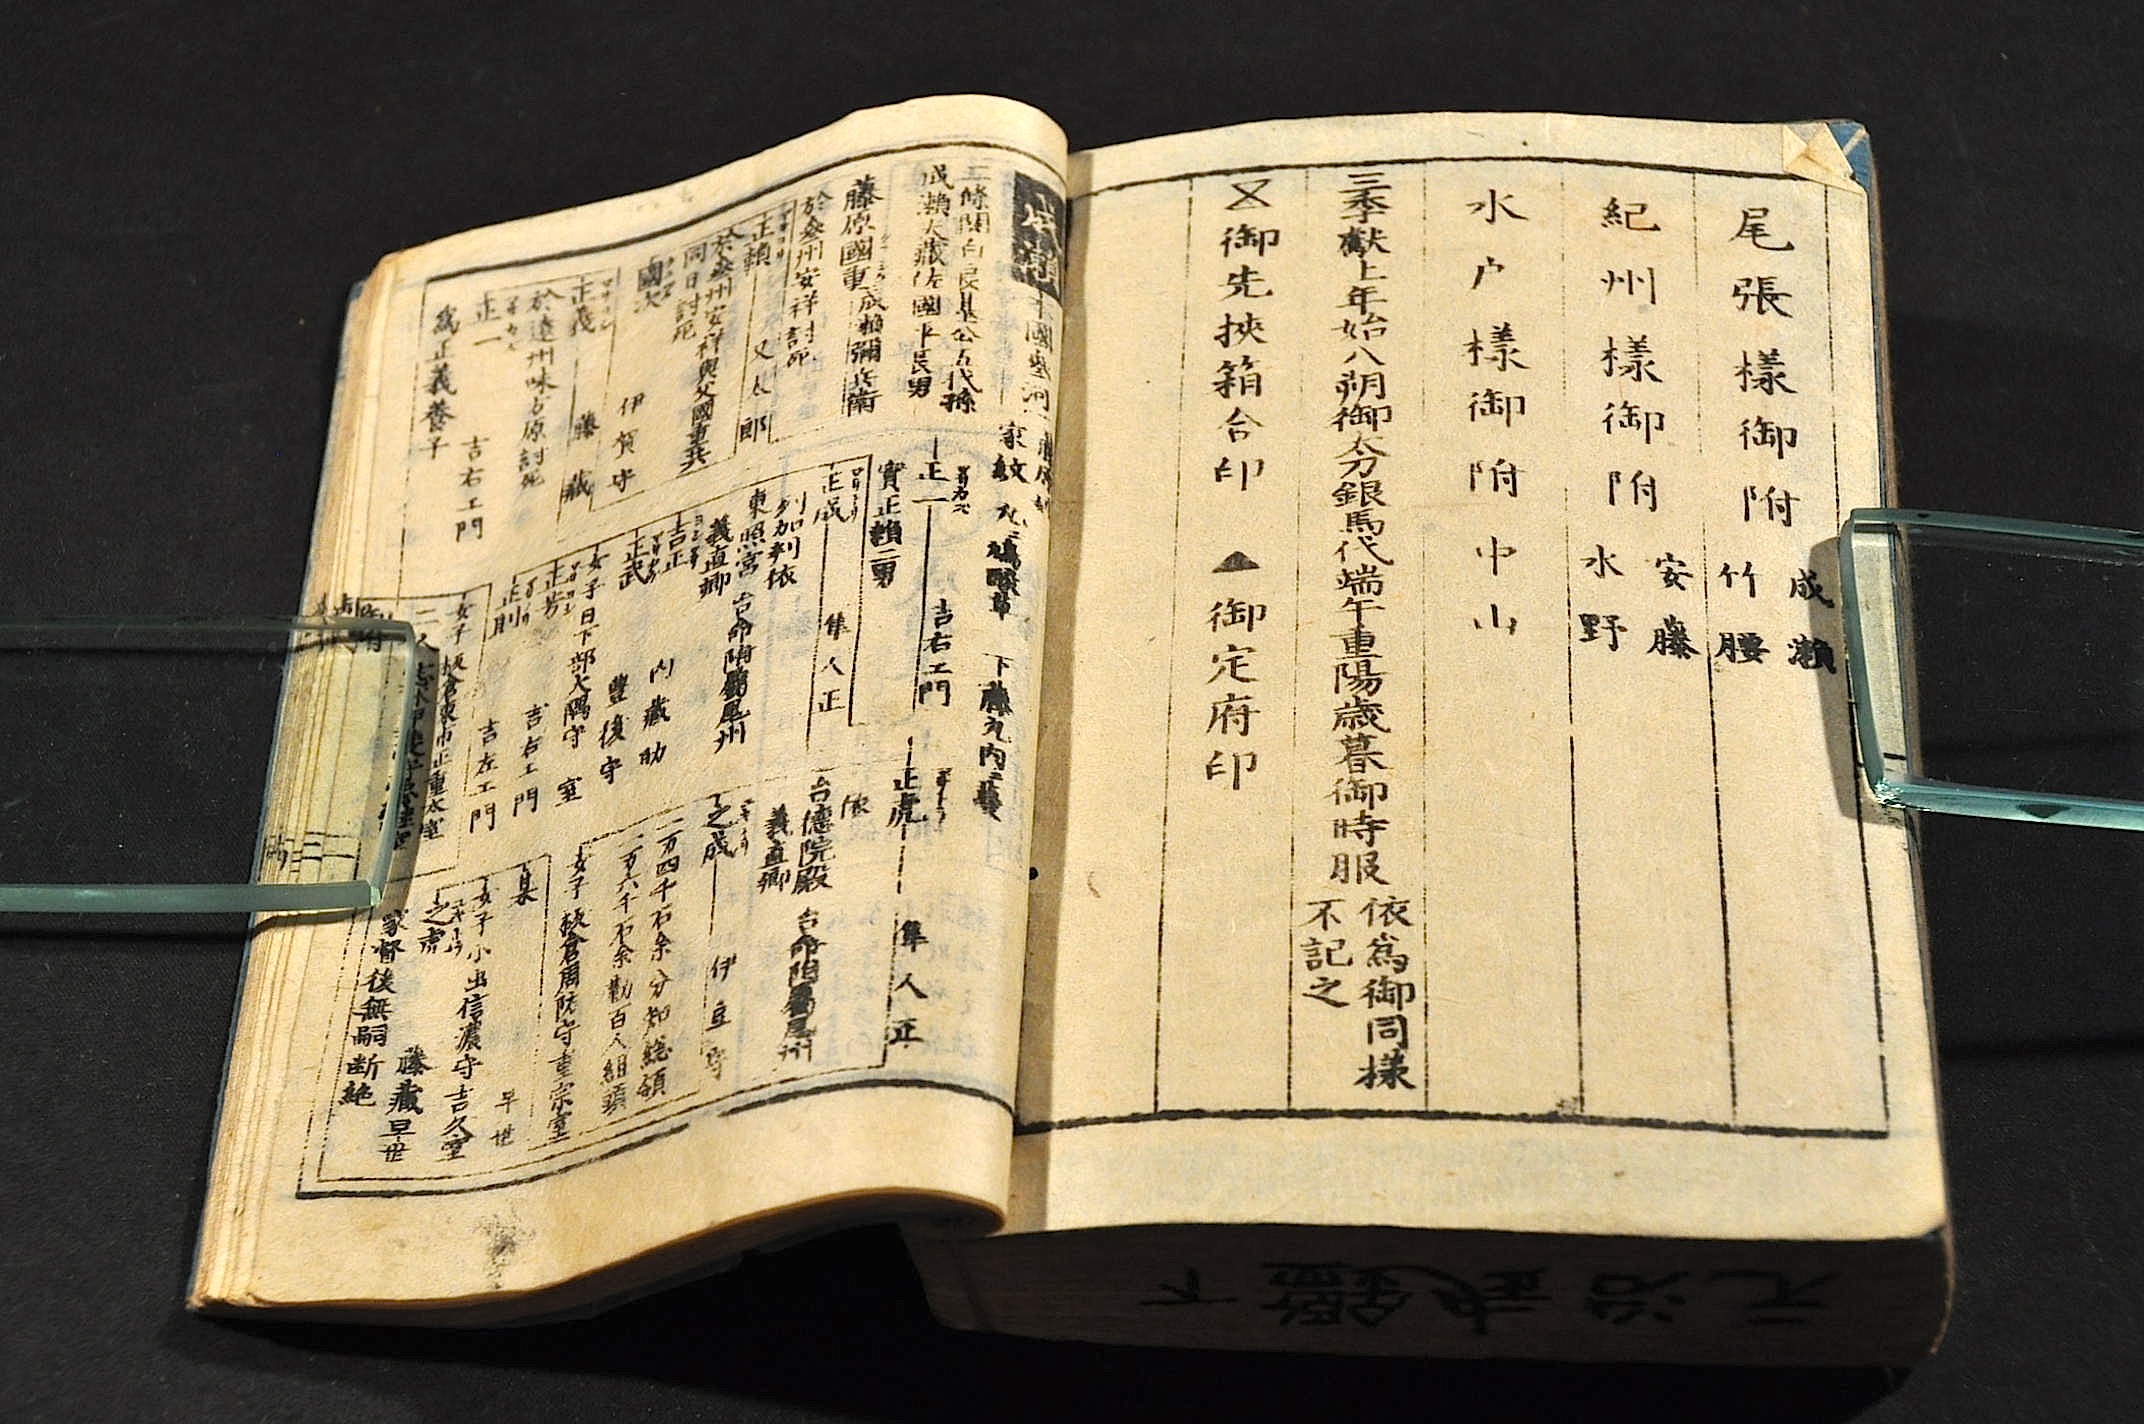 尾張樣御附
成瀬
竹腰
紀州樣御附
安藤
水野
水户樣御附中山
三季獻上年始八朔御太刀銀馬代端午重陽歳暮御時服
依爲御同樣
不記之
御先挾箱合印
▲御定府印
成瀬
家紋
三條関白良基公五代孫
成瀬大藏佐國平長男
藤原國重
成瀬彌兵衛
於參州安祥討死
正頼
又太郎
於參州安祥與父國重共
同日討死
國次
伊賀守
正義
藤藏
於遠州味方原討死
正一
吉右エ門
爲正義養子
正一
吉右エ門
實正頼二男
正成
隼人正
列加判依
東照宮
台命附屬尾州
義直卿
吉正
内藏助
正武
豊後守
女子日下部大隅守室
正芳
吉右エ門
正則
吉左エ門
女子板倉東市正重大室
二人
正虎
隼人正
依
台德院殿
台命附屬尾州
義直卿
之成
伊豆守
一万四千石余分知總領
一万六千石余勤百人組頭
女子板倉周防守重宗室
某
早世
女子小出信濃守吉久室
之虎
藤藏早世
家督後無嗣断絶
元治武鑑 下